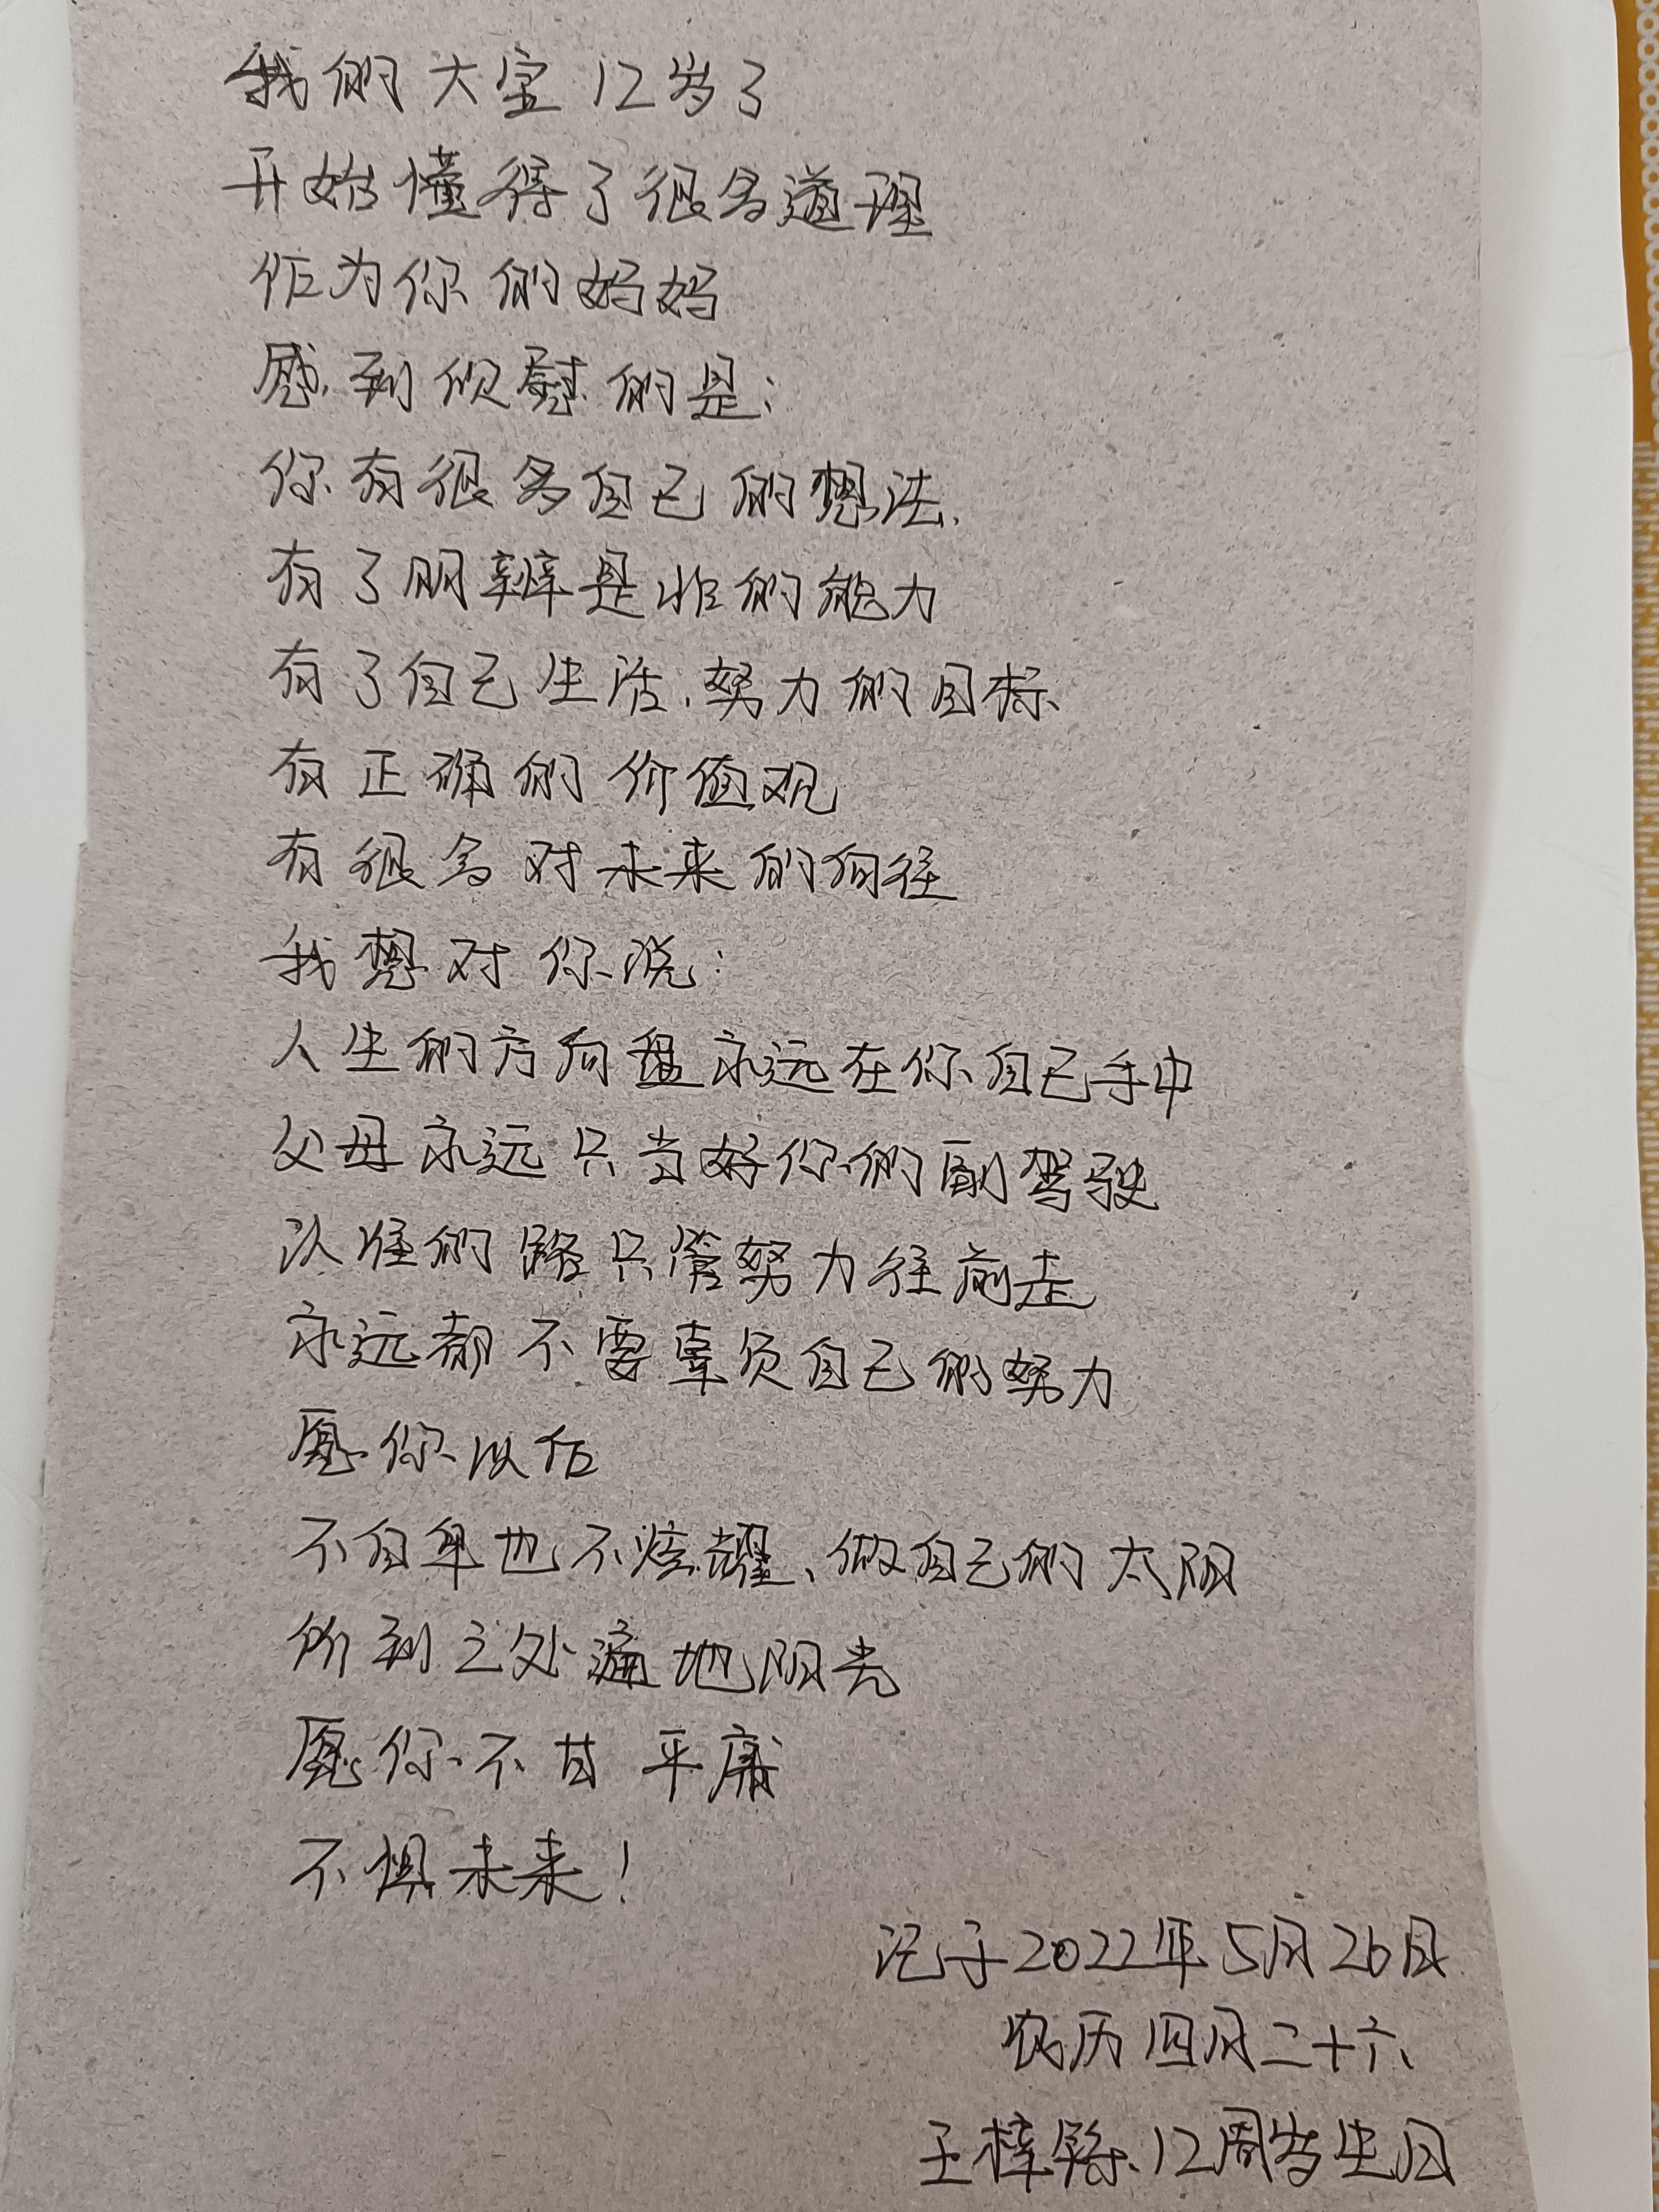 我们大宝12岁了
开始懂得了很多道理
作为你的妈妈
感到欣慰的是:
你有很多自己的想法,
有了明辨是非的能力
有了自己生活、努力的目标
有正确的价值观
有很多对未来的向往
我想对你说:
人生的方向盘永远在你自己手中
父母永远只当好你们副驾驶
认准的路只管努力往前走
永远都不要辜负自己的努力
愿你以后
不自卑也不炫耀、做自己的太阳
所到之处遍地阳光
愿你不甘平庸
不惧未来!
记于2022年5月26日
农历四月二十六
王梓 12周岁生日